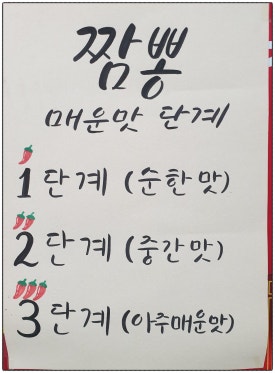 짬뽕
매운맛 단계
1단계 (순한맛)
2단계 (중간맛)
3단계 (아주매운맛)